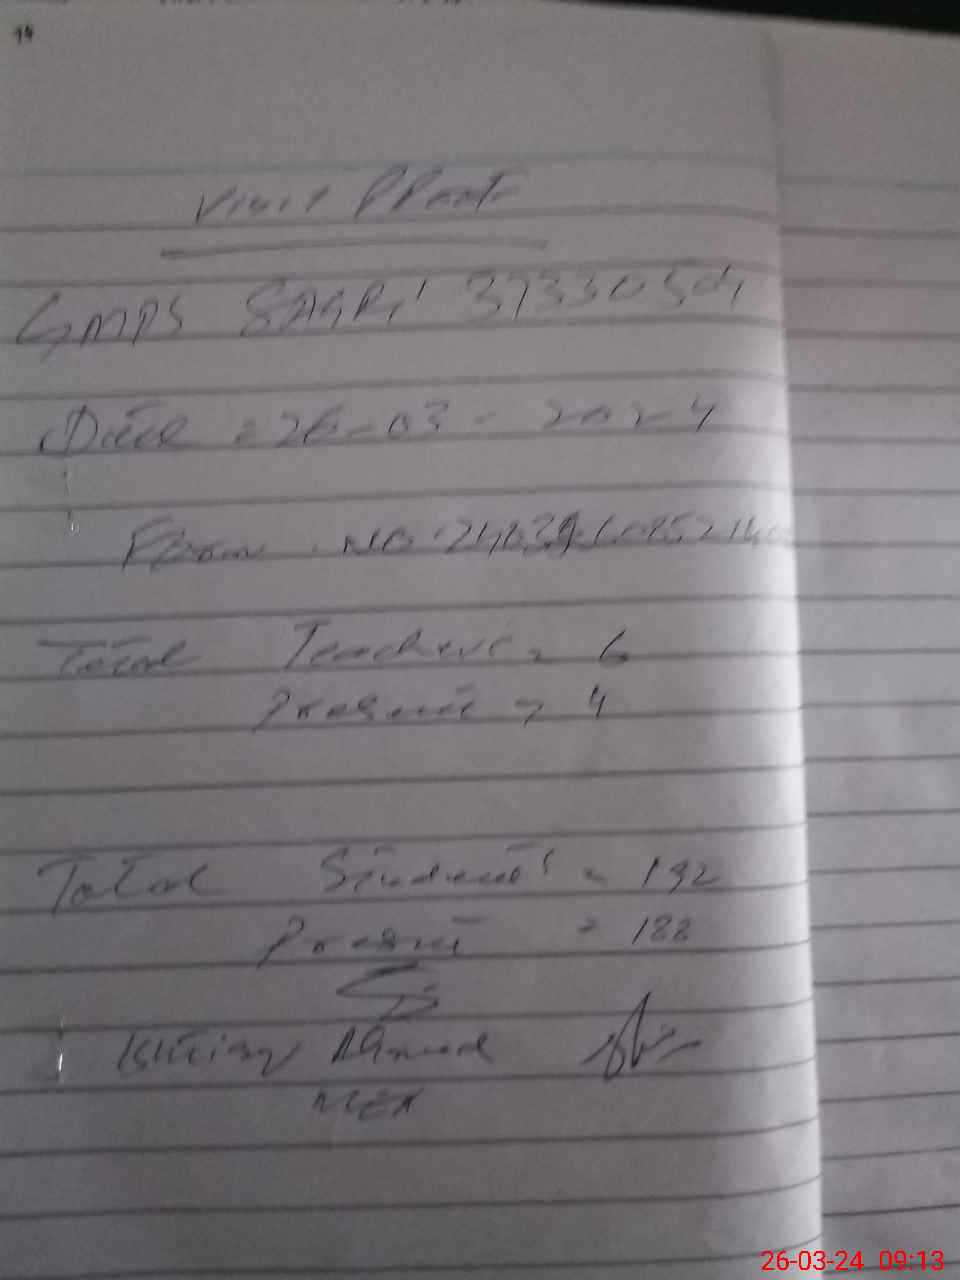 14
Visit Proof
GMPS SAGRI 37330504
Date = 26-03-2024
Form No
Total Teachers = 6
Present = 4
Total Students = 192
Present = 188
Ishtiaq Ahmad
MEA
26-03-24 09:13